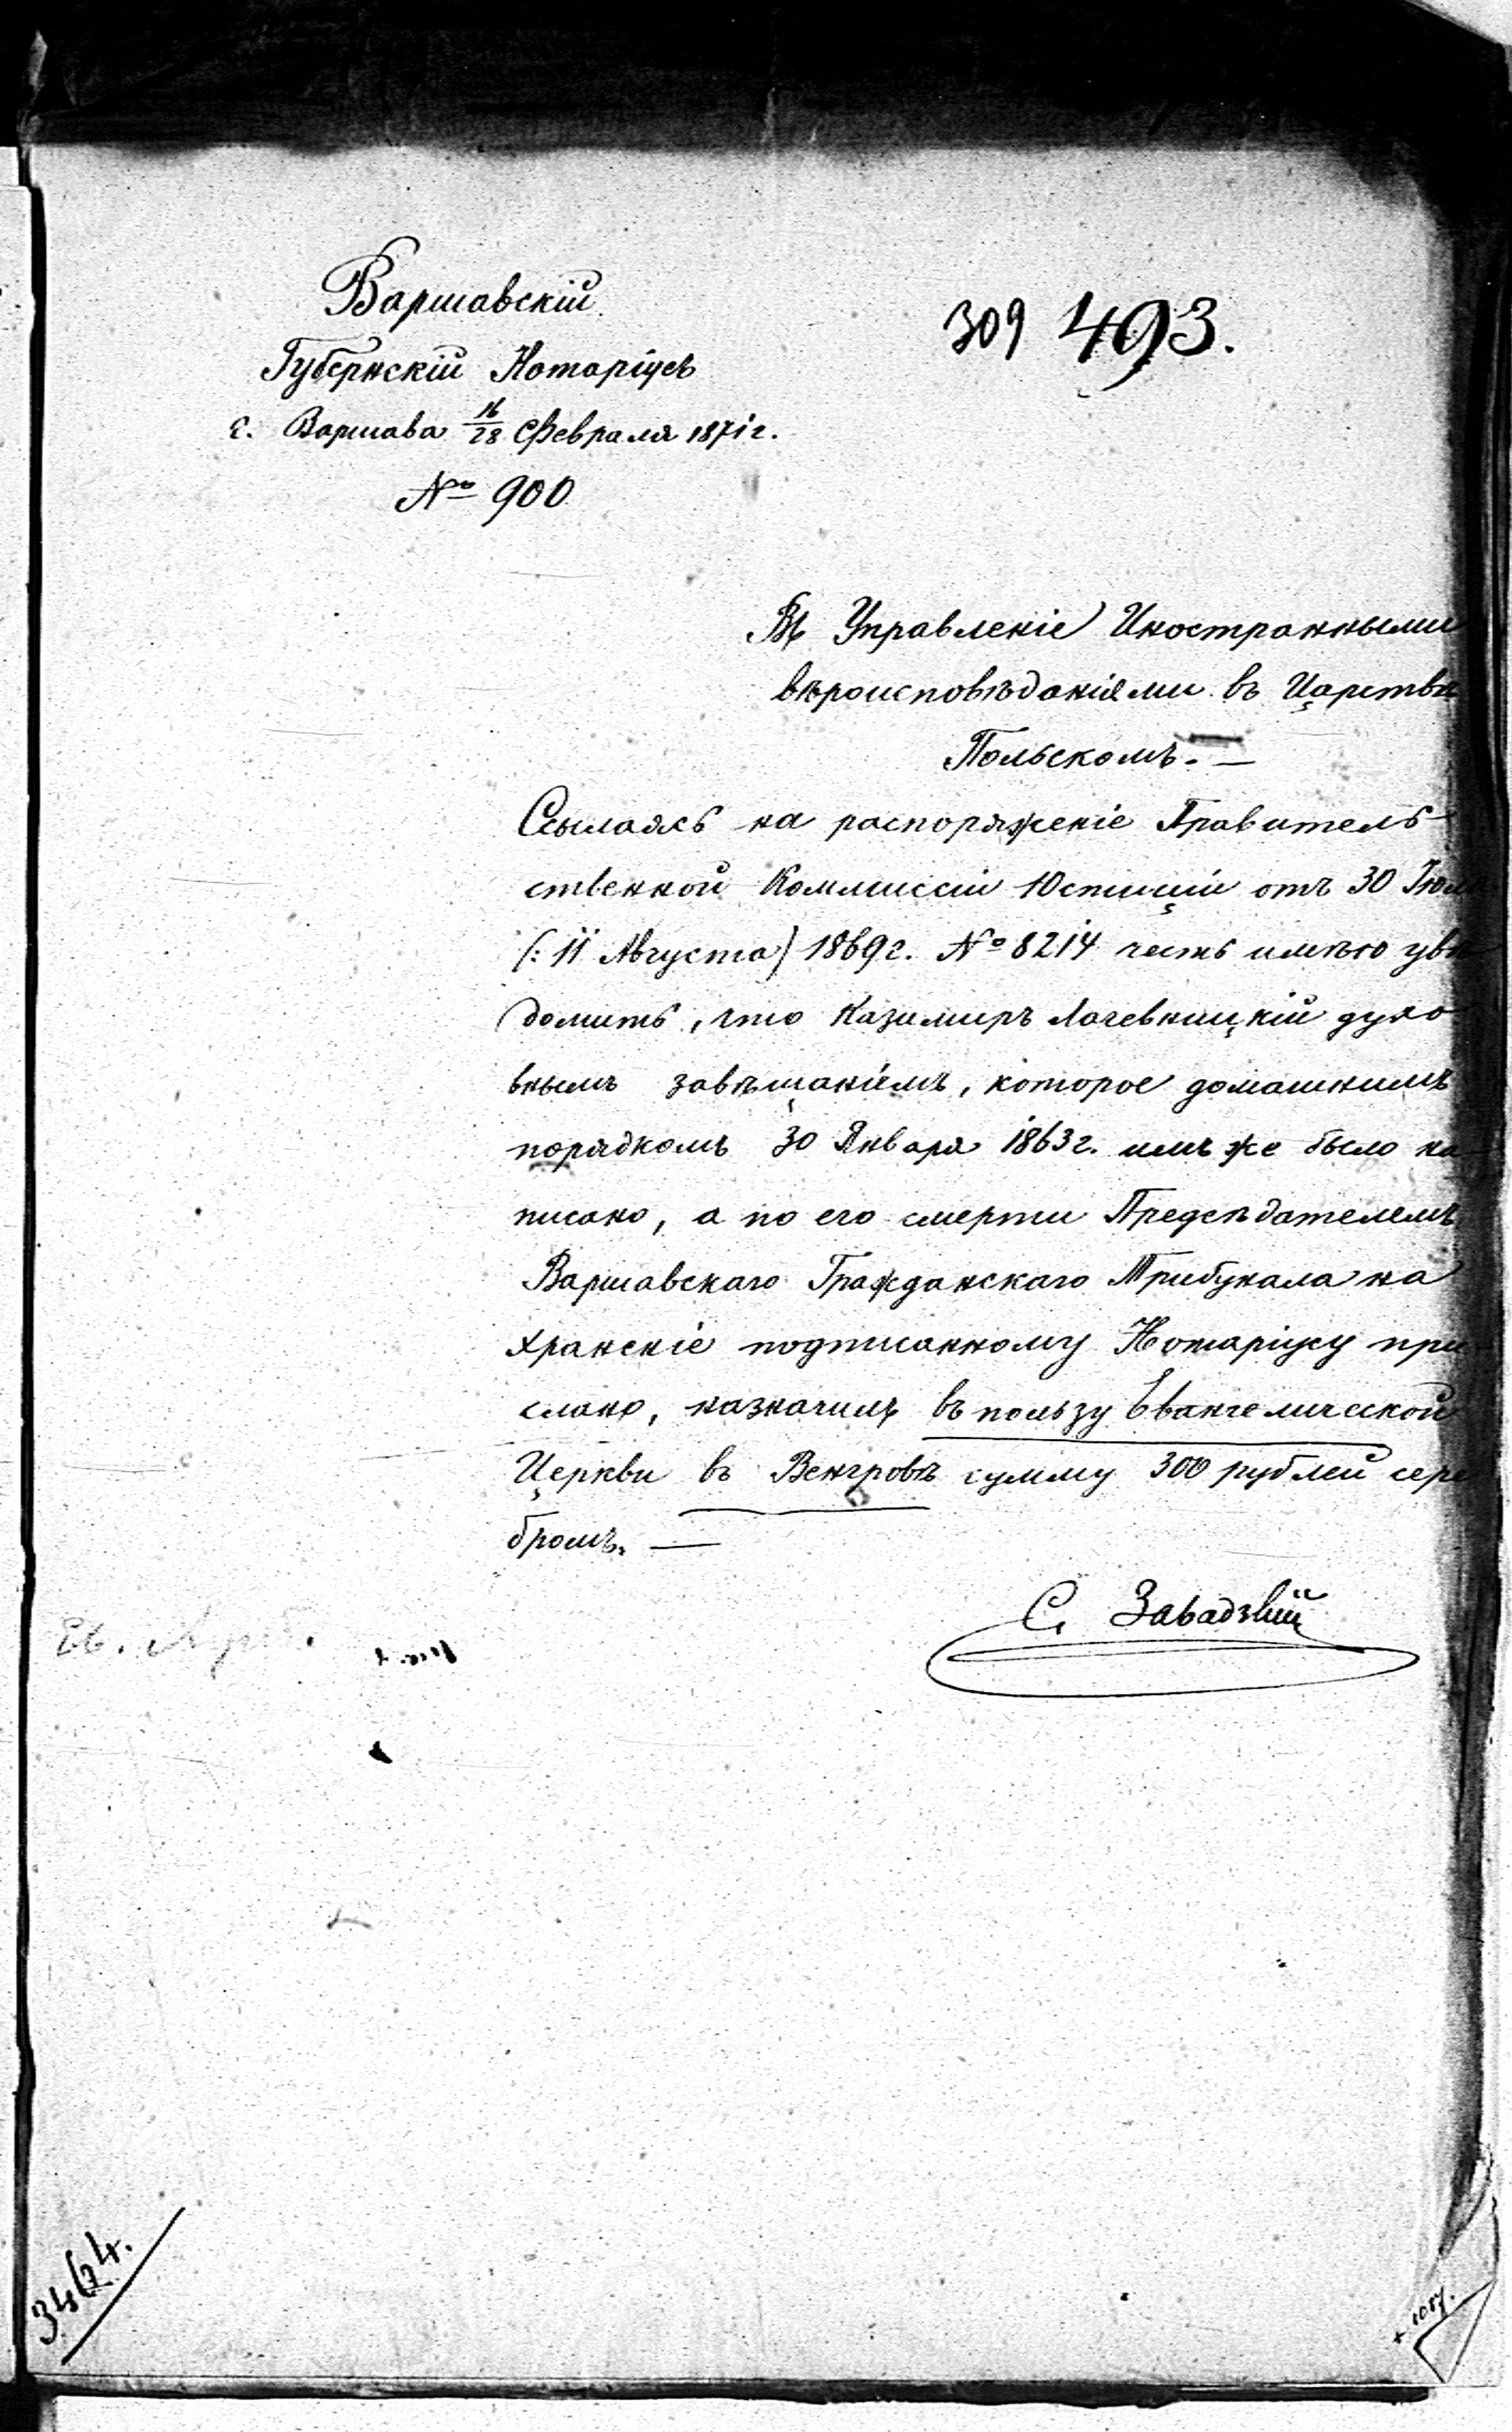 Варшавскій
Губернскій Нотаріусъ
г. Варшава 16/28 Февраля 1871 г.
№ 900
309 493.
Въ Управленіе Иностранными
вѣроисповѣданіями въ Царствѣ
Польскомъ. —
Ссылаясь на распоряженіе Правитель-
ственной Коммиссіи Юстиціи отъ 30 Іюля
(: 11 Августа) 1869 г. № 8214 честь имѣю увѣ
домить, что Казимиръ Лачевницкій духо
внымъ завѣщаніемъ, которое домашнимъ
порядкомъ 30 Января 1863 г. имъ же было на-
писано, а по его смерти Предсѣдателемъ
Варшавскаго Гражданскаго Трибунала на
храненіе подписанному Нотаріусу при-
слано, назначилъ въ пользу Евангелической
Церкви въ Венгровѣ сумму 300 рублей сере
бромъ. —
С. Завадзкій
3464.
+ 1087.